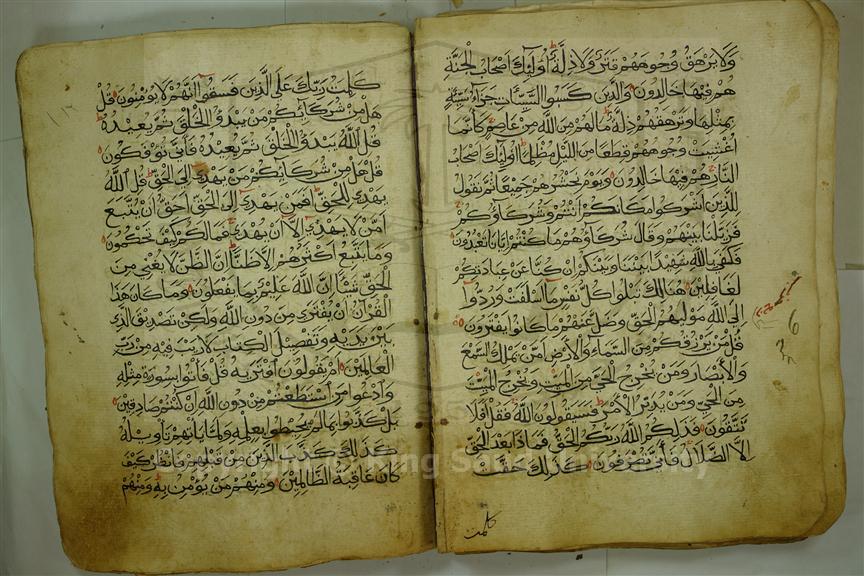 ولا يرهق وجوههم قتر ولا ذلة اوليك اصحاب الجنة
هم فيها خالدون والذين كسبوا السيئات جزاء سيئة
بمثلها وترهقهم ذلة مالهم من الله من عاصم كانما
اغشيت وجوههم قطعا من الليل مظلما اوليك اصحاب
النار هم فيها خالدون ويوم نحشرهم جميعا ثم نقول
للذين اشركوا مكانكم انتم وشركاؤكم
فزيلنا بينهم وقال شركاؤهم ما كنتم ايانا تعبدون
فكفى بالله شهيدا بيننا وبينكم ان كنا عن عبادتكم
لغافلين هنالك تبلوا كل نفس ما اسلفت وردوا
الى الله موليهم الحق وضل عنهم ما كانوا يفترون
قل من يرزقكم من السماء والارض امن يملك السمع
والابصار ومن يخرج الحي من الميت ويخرج الميت
من الحي ومن يدبر الامر فسيقولون الله فقل افلا
تتقون فذلكم الله ربكم الحق فماذا بعد الحق
الا الضلال فانى تصرفون كذلك حقت
كلمت
كلمت ربك على الذين فسقوا انهم لا يومنون قل
هل من شركايكم من يبدؤ الخلق ثم يعيده
قل الله يبدؤ الخلق ثم يعيده فانى توفكون
قل هل من شركايكم من يهدي الى الحق قل الله
يهدي للحق افمن يهدي الى الحق احق ان يتبع
امن لا يهدي الا ان يهدي فمالكم كيف تحكمون
وما يتبع اكثرهم الا ظنا ان الظن لا يغني من
الحق شيئا ان الله عليم بما يفعلون وما كان هذا
القرآن ان يفترى من دون الله ولكن تصديق الذي
بين يديه وتفصيل الكتاب لا ريب فيه من رب
العالمين ام يقولون افتريه قل فاتوا بسورة مثله
وادعوا من استطعتم من دون الله ان كنتم صادقين
بل كذبوا بما لم يحيطوا بعلمه ولما ياتهم تاويله
كذلك كذب الذين من قبلهم فانظر كيف
كان عاقبة الظالمين ومنهم من يؤمن به ومنهم